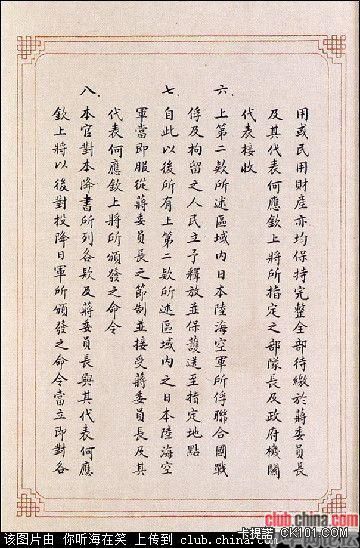 用或民用財產亦均保持完整全部待繳於蔣委員長
及其代表何應欽上將所指定之部隊長及政府機關
代表接收
六、上第二款所述區域內日本陸海空軍所俘聯合國戰
俘及拘留之人民立予釋放並保護送至指定地點
七、自此以後所有上第二款所述區域內之日本陸海空
軍當即服從蔣委員長之節制並接受蔣委員長及其
代表何應欽上將所頒發之命令
八、本官對本降書所列各款及蔣委員長與其代表何應
欽上將以後對投降日軍所頒發之命令當立即對各
club.china.com
卡提諾 CK101.COM
该图片由 你听海在笑 上传到 club.china.com